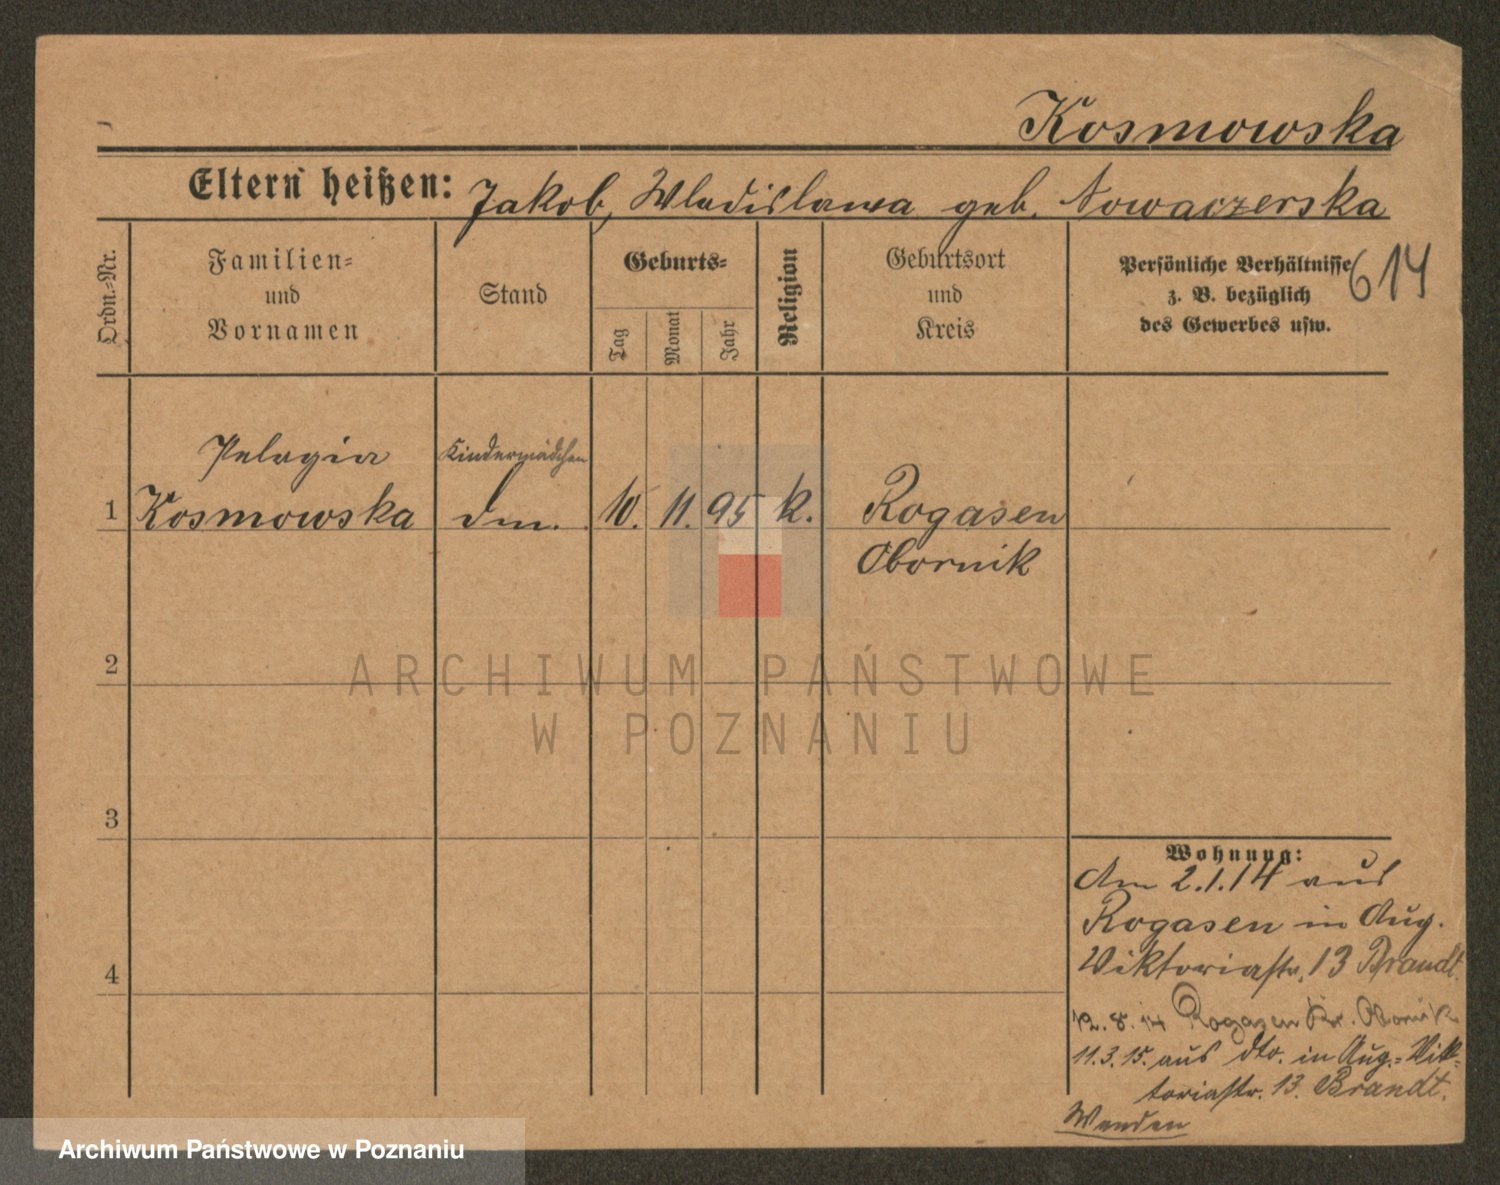 Kosmowska
Eltern heißen: Jakob, Wladislawa geb. Nowaczerska
Ordn.-Nr.
Familien-
und
Vornamen
Stand
Geburts-
Tag
Monat
Jahr
Religion
Geburtsort
und
Kreis
Persönliche Verhältnisse
z. B. bezüglich
des Gewerbes usw.
614
Pelagia Kindermädchen
1 Kosmowska 10. 11. 95 k. Rogasen
Obornik
2
ARCHIWUM PAŃSTWOWE
W POZNANIU
3
Wohnung:
Am 2.1.14 aus
Rogasen in Aug.
Viktoriastr. 13 Brandt
12.8.14 Rogasen Kr. Obornik
11.3.15. aus dto. in Aug.-Vik-
toriastr. 13. Brandt.
Wenden
4
Archiwum Państwowe w Poznaniu